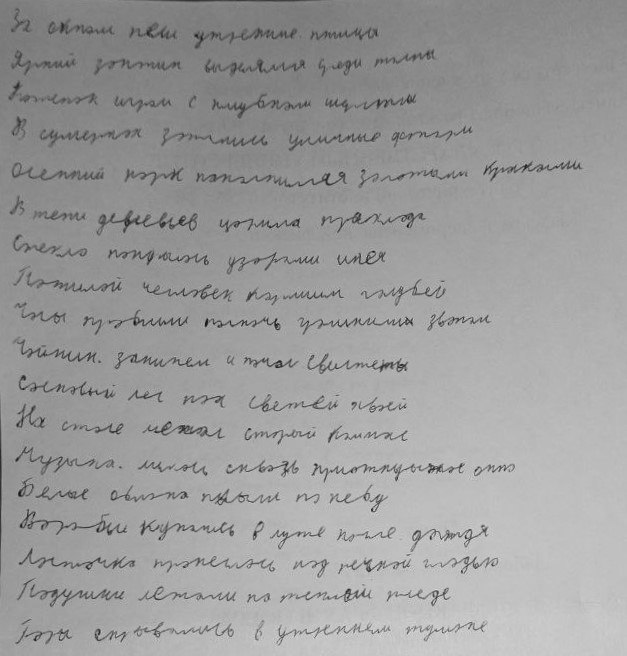 За окном пели утренние птицы
Яркий зонтик выделялся среди толпы
Котенок играл с клубком шерсти
В сумерках зажглись уличные фонари
Осенний парк наполнился золотыми красками
В тени деревьев царила прохлада
Стекло покрылось узорами инея
Пожилой человек кормил голубей
Часы пробили полночь гулкими звоном
Чайник закипел и начал свистеть
Сосновый лес пах свежей хвоей
На столе лежал старый компас
Музыка лилась сквозь приоткрытое окно
Белые облака плыли по небу
Воробьи купались в луже после дождя
Ласточка пронеслась над речной гладью
Подушки лежали на теплом пледе
Горы скрывались в утреннем тумане